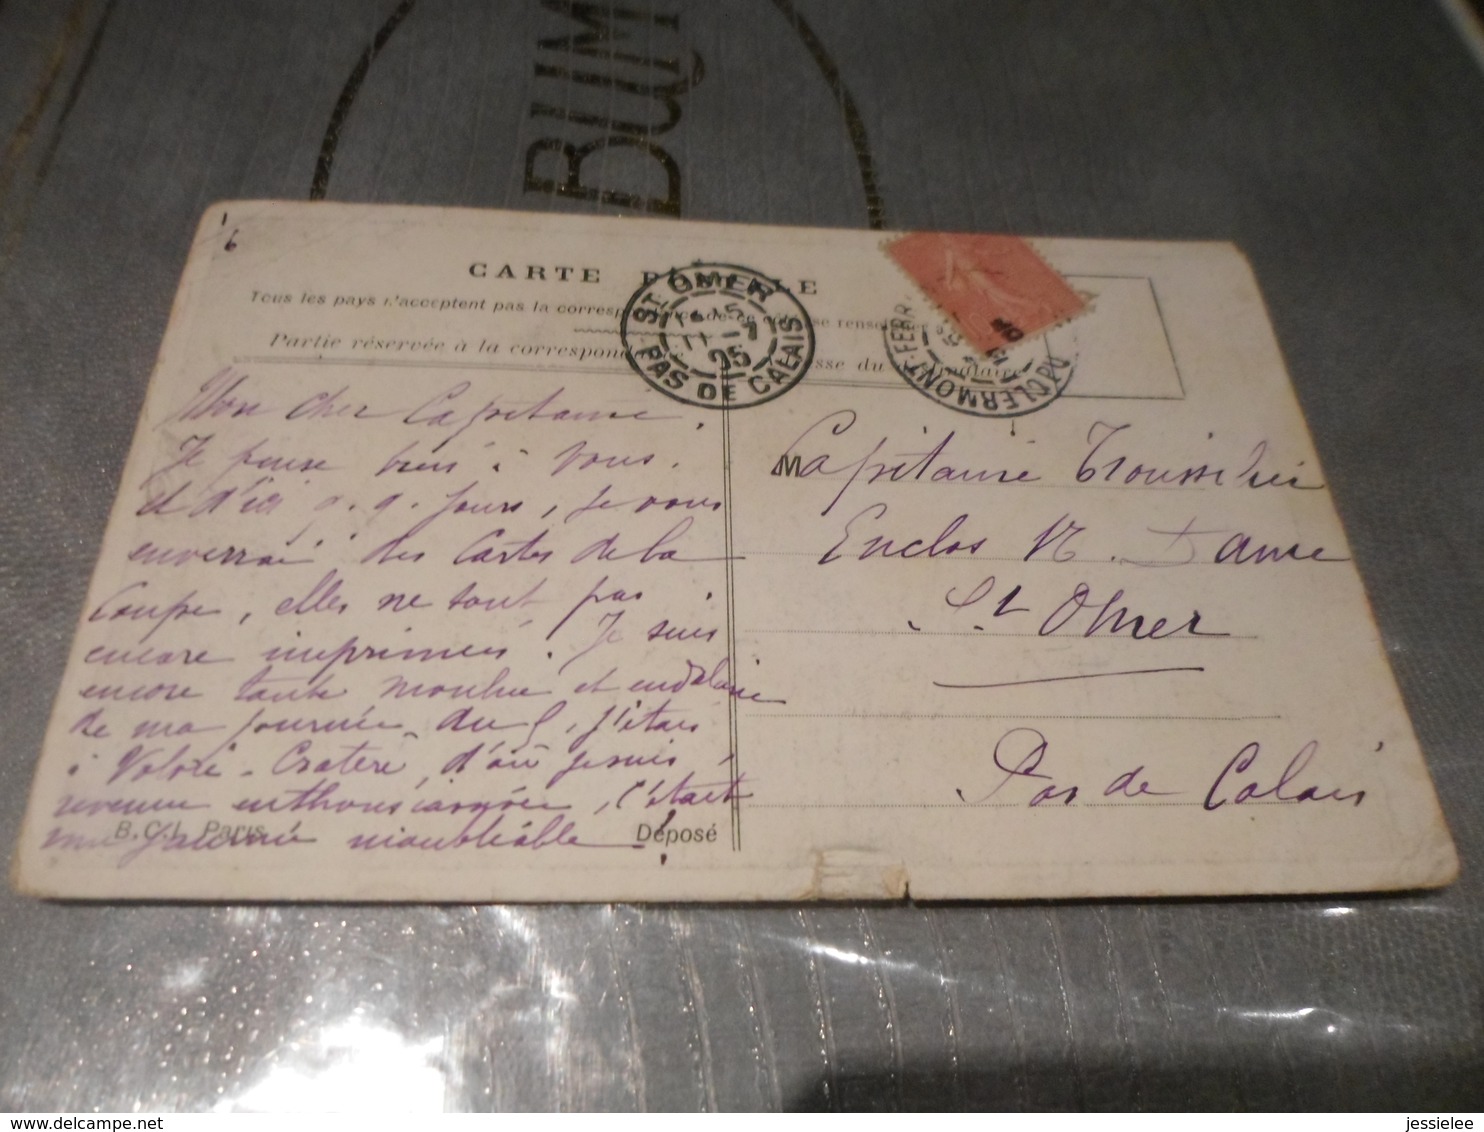 BUM
1
6
CARTE POSTALE
Tous les pays n'acceptent pas la corresp
se renseigner
Partie réservée à la correspondance
sse du
ST OMER
15
05
PAS DE CALAIS
CLERMONT-FERR
PU
Mon cher Capitaine,
Je pense bien à Vous.
et d'ici q.q. jours, je vous
enverrai des Cartes de la
Coupe, elles ne sont pas
encore imprimées. Je suis
encore toute moulue et endolorie
de ma journée du
j'étais
à Volvic - Cratère, d'où je suis
revenue enthousiasmée, c'était
une journée inoubliable !
B.C.I. Paris
Déposé
M
Capitaine
Enclos N. Dame
St Omer
Pas de Calais
jessielee